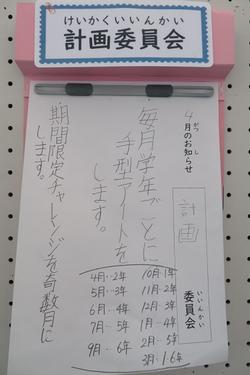 けいかくいいんかい
計画委員会
4月のお知らせ
がつ し
計画
委員会
いいんかい
毎月学年ごとに
手型アートを
します。
4月…2年 10月…1年
5月…3年 11月…2年
6月…4年 12月…3年
7月…5年 1月…4年
9月…6年 2月…5年
3月…1.6年
期間限定チャレンジを奇数月に
します。